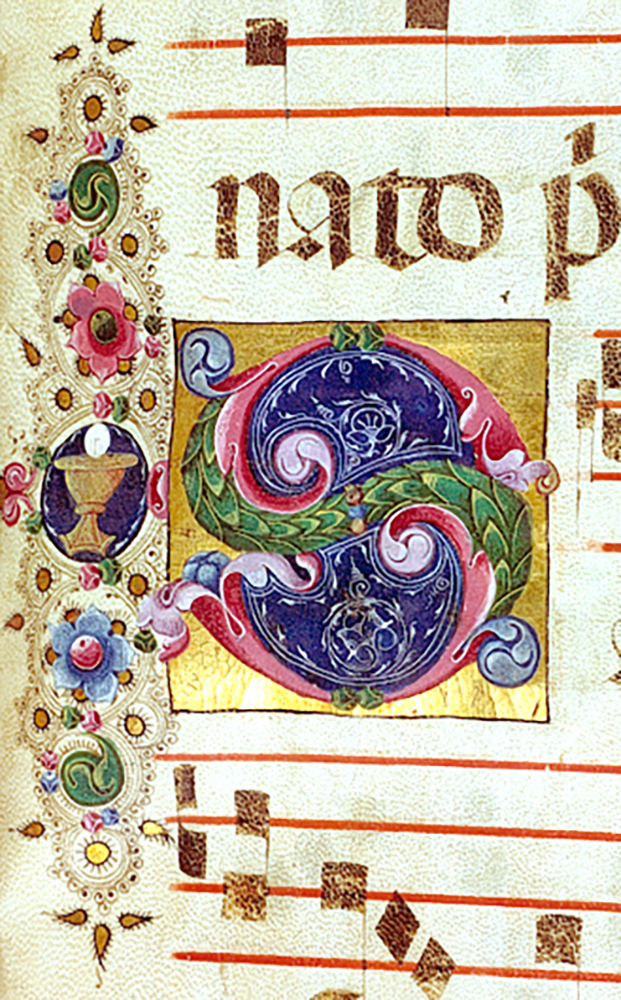 nato p
S